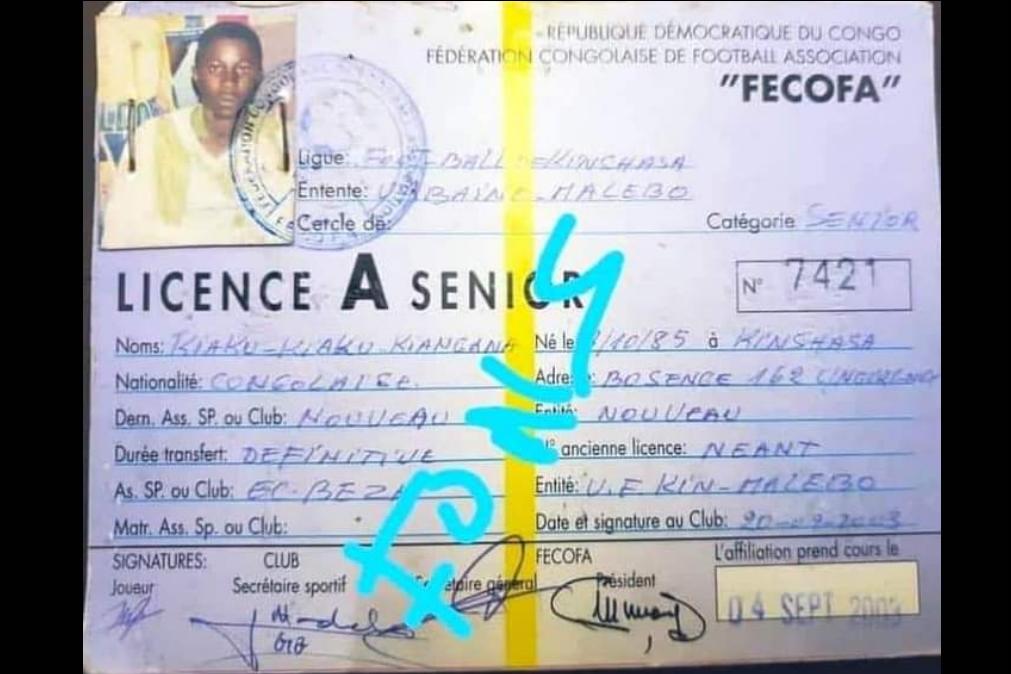 RÉPUBLIQUE DÉMOCRATIQUE DU CONGO
FÉDÉRATION CONGOLAISE DE FOOTBALL ASSOCIATION
"FECOFA"
Ligue: FOOTBALL KINSHASA
Entente: URBAINE-MALEBO
Cercle de:
Catégorie SENIOR
LICENCE A SENIOR
N° 7421
Noms: KIAKU-KIAKU KIANGANA Né le /10/85 à KINSHASA
Nationalité: CONGOLAISE. BOSENGE 162
Dern. Ass. SP. ou Club: NOUVEAU Entité: NOUVEAU
Durée transfert: DEFINITIVE N° ancienne licence: NEANT
As. SP. ou Club: Entité: U.E KIN-MALEBO
Matr. Ass. Sp. ou Club: Date et signature au Club: 2003
SIGNATURES: CLUB FECOFA L'affiliation prend cours le
Joueur Secrétaire sportif Secrétaire général Président
04 SEPT 2003